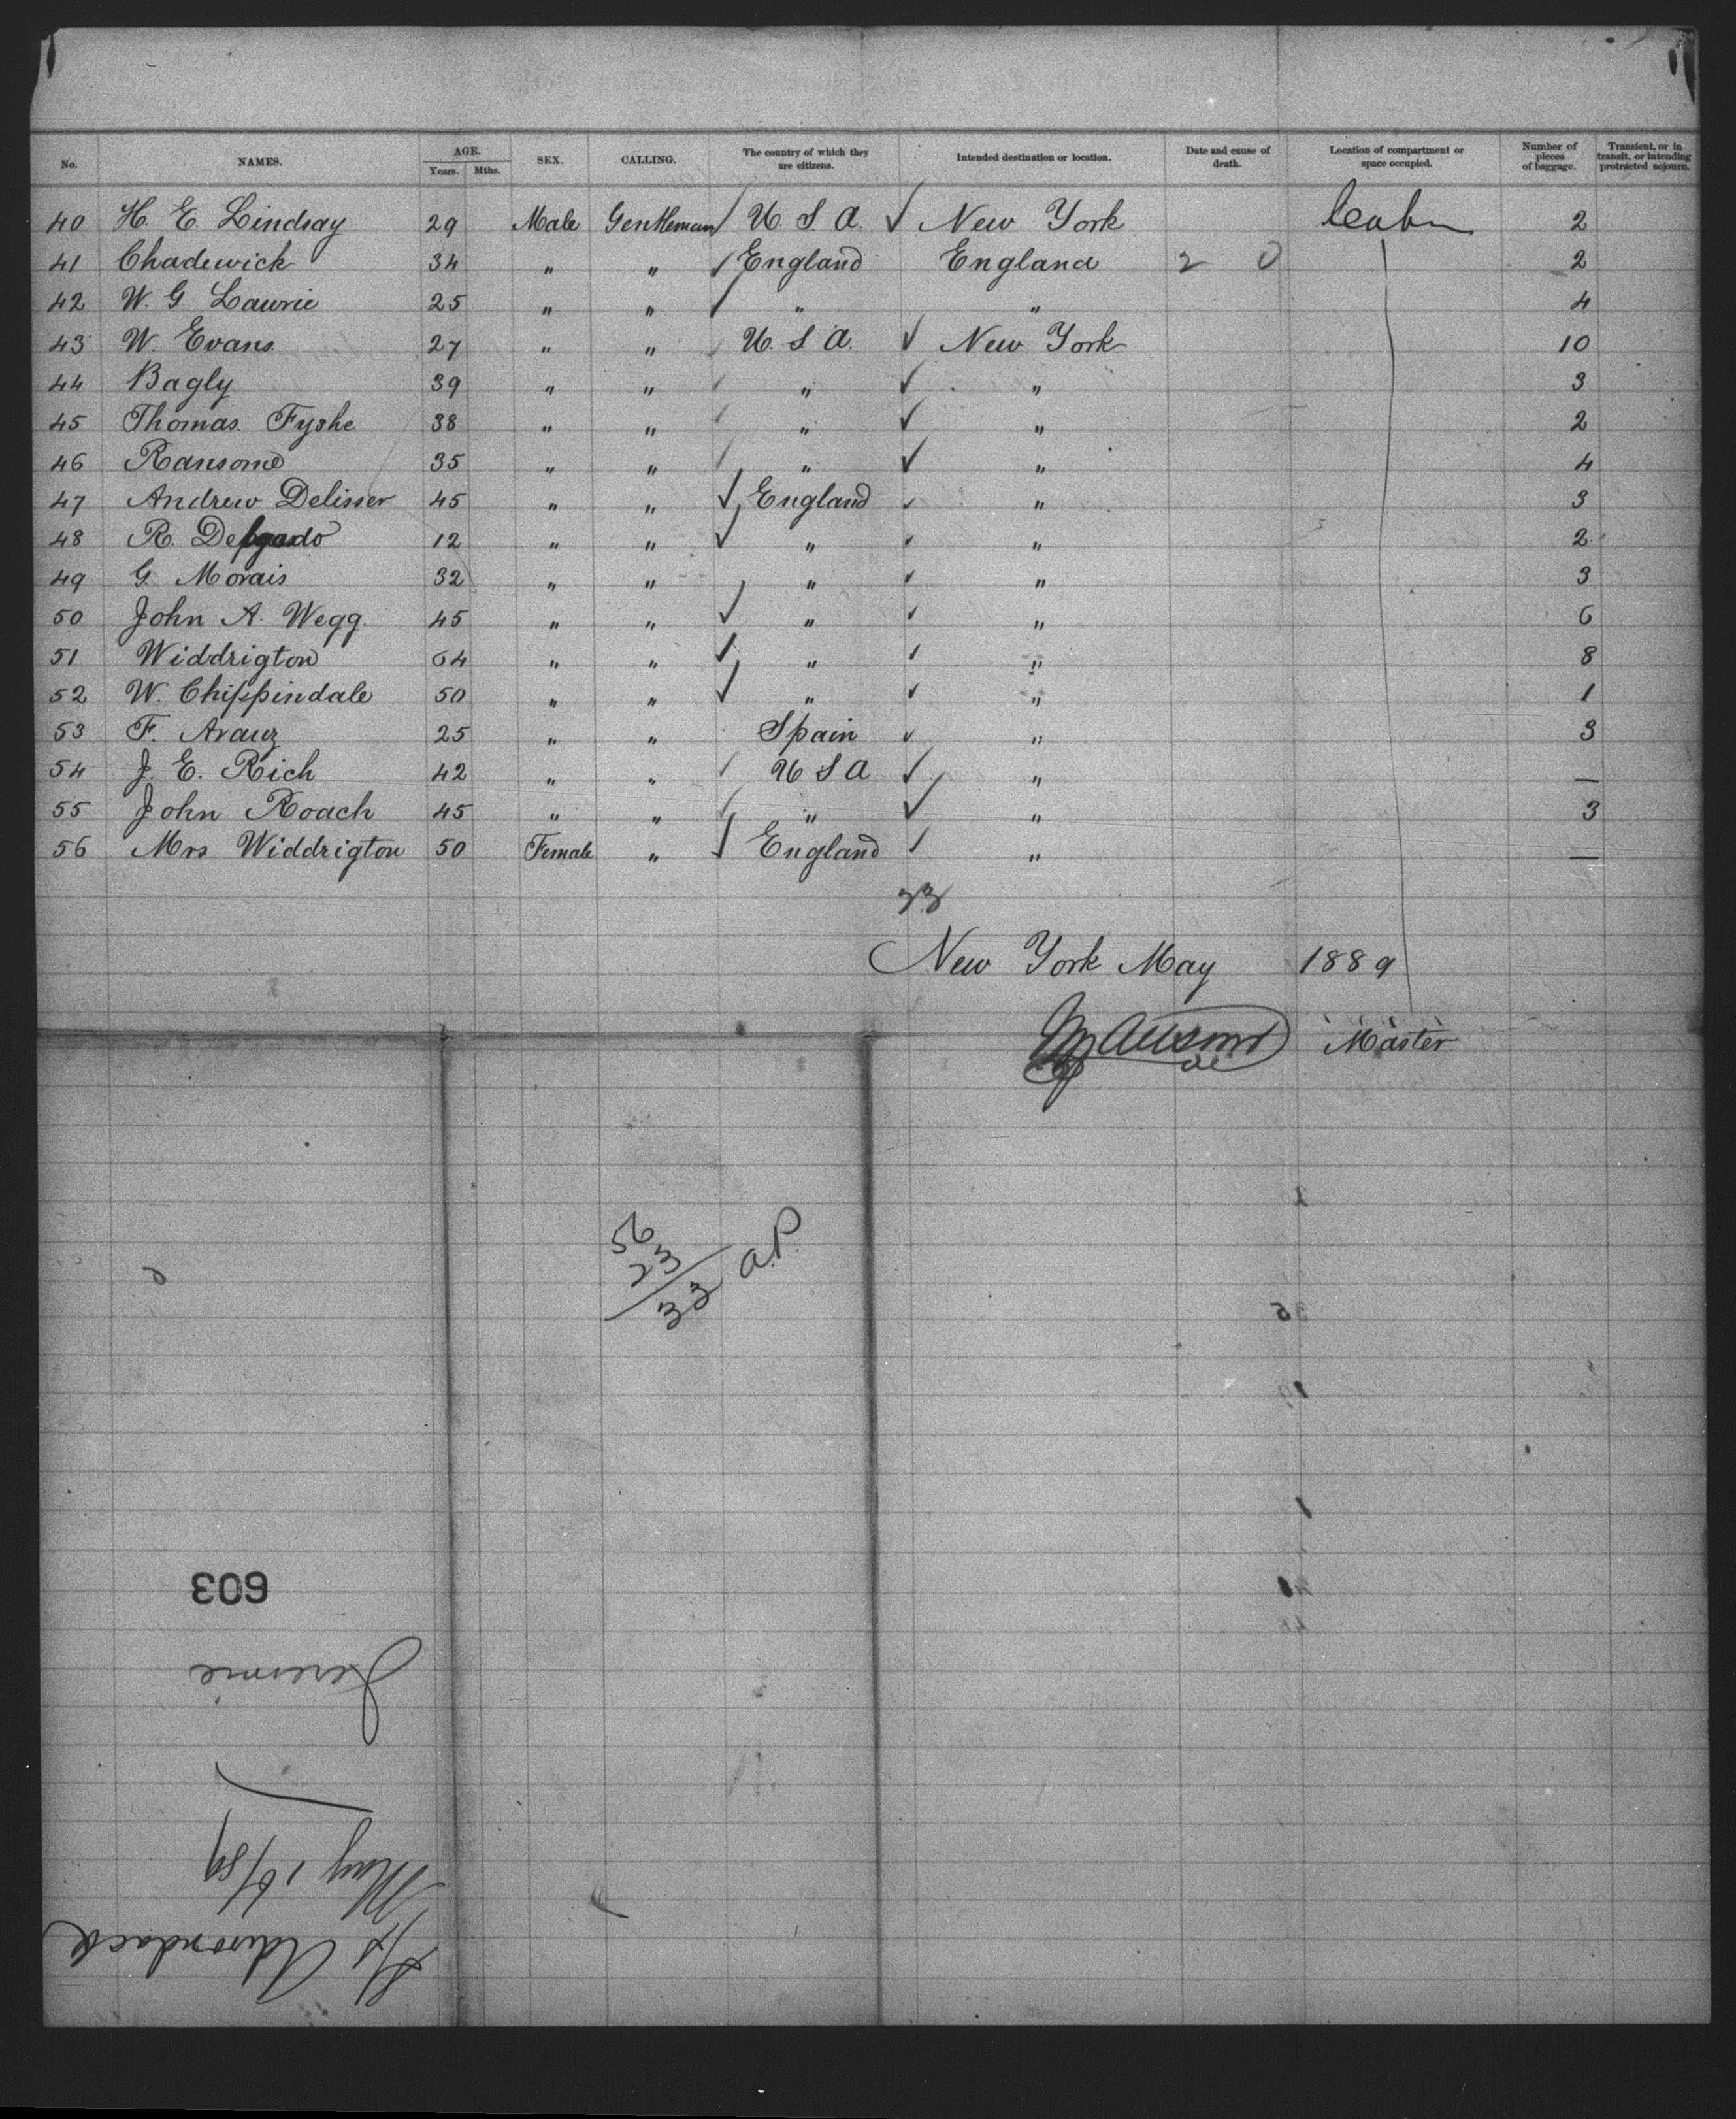 No. NAMES. AGE. Years. Mths. SEX. CALLING. The country of which they are citizens. Intended destination or location. Date and cause of death. Location of compartment or space occupied. Number of pieces of baggage. Transient, or in transit, or intending protracted sojourn.
40 H. E. Lindsay 29 Male Gentleman U. S. A. New York 2
41 Chadewick 34 " " England England 2 0 2
42 W. G Laurie 25 " " " " 4
43 W. Evans 27 " " U. S. A. New York 10
44 Bagly 39 " " " " 3
45 Thomas. Fyshe 38 " " " " 2
46 Ransome 35 " " " " 4
47 Andrew Delisser 45 " " England " 3
48 R. Delgado 12 " " " " 2
49 G. Morais 32 " " " " 3
50 John A. Wegg. 45 " " " " 6
51 Widdrigton 64 " " " " 8
52 W. Chippindale 50 " " " " 1
53 F. Arauz 25 " " Spain " 3
54 J. E. Rich 42 " " U S A " —
55 John Roach 45 " " " " 3
56 Mrs Widdrigton 50 Female " England " —
33
New York May 1889
Master
56
23
33 a.P.
603
Jeremie
May 16/89
S/S Adirondack